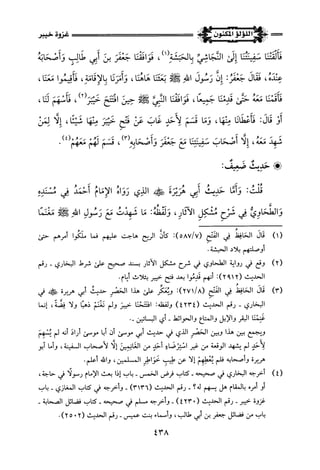 اللؤلؤ المكنون
غزوة خيبر
فَأَلْقَتْنَا سَفِينَتُنَا إِلَى النَّجَاشِيِّ بِالحَبَشَةِ(١)، فَوَافَقْنَا جَعْفَرَ بنَ أَبِي طَالِبٍ وَأَصْحَابَهُ
عِنْدَهُ، فَقَالَ جَعْفَرٌ: إِنَّ رَسُولَ اللهِ ﷺ بَعَثَنَا هَاهُنَا، وَأَمَرَنَا بِالإِقَامَةِ، فَأَقِيمُوا مَعَنَا،
فَأَقَمْنَا مَعَهُ حَتَّى قَدِمْنَا جَمِيعًا، فَوَافَقْنَا النَّبِيَّ ﷺ حِينَ افْتَتَحَ خَيْبَرَ(٢)، فَأَسْهَمَ لَنَا،
أَوْ قَالَ: فَأَعْطَانَا مِنْهَا، وَمَا قَسَمَ لِأَحَدٍ غَابَ عَنْ فَتْحِ خَيْبَرَ مِنْهَا شَيْئًا، إِلَّا لِمَنْ
شَهِدَ مَعَهُ، إِلَّا أَصْحَابَ سَفِينَتِنَا مَعَ جَعْفَرَ وَأَصْحَابِهِ(٣)، قَسَمَ لَهُمْ مَعَهُمْ(٤).
◉ حَدِيثٌ ضَعِيفٌ:
قُلْتُ: وَأَمَّا حَدِيثُ أَبِي هُرَيْرَةَ ﷺ الذِي رَوَاهُ الإِمَامُ أَحْمَدُ فِي مُسْنَدِهِ
وَالطَّحَاوِيُّ فِي شَرْحِ مُشْكِلِ الآثَارِ، وَلَفْظُهُ: مَا شَهِدْتُ مَعَ رَسُولِ اللهِ ﷺ مَغْنَمًا
(١) قَالَ الحَافِظُ فِي الفَتْحِ (٥٨٧/٧): كأنَّ الريح هاجت عليهم فما ملكُوا أمرهم حتى
أوصلتهم بلاد الحبشة.
(٢) وقع في رواية الطحاوي في شرح مشكل الآثار بسند صحيح على شرط البخاري - رقم
الحديث (٢٩١٢): أنهم قدِمُوا بعد فتح خيبر بثلاث أيام.
(٣) قَالَ الحَافِظُ فِي الفَتْحِ (٢٧١/٨): ويُعَكِّر على هذا الحَصْرِ حديثُ أبي هريرة في
البخاري - رقم الحديث (٤٢٣٤) ولفظه: افتتحْنا خَيبرَ ولم نَغْنَمْ ذهبًا ولا فِضَّةً، إنما
غَنِمْنَا البقر والإبل والمتاع والحوائط - أي البساتين -.
ويجمع بين هذا وبين الحَصْرِ الذي في حديث أبي موسى أن أبا موسى أرادَ أنه لم يُسْهِمْ
لأحَدٍ لم يشهد الوقعة من غير اسْتِرْضَاءِ أحدٍ من الغَانِمِينَ إلَّا لأصحاب السفينة، وأما أبو
هريرة وأصحابه فلم يُعْطِهِمْ إلا عن طِيبِ خَوَاطِرِ المسلمين، والله أعلم.
(٤) أخرجه البخاري في صحيحه - كتاب فرض الخمس - باب إذا بعث الإمام رسولًا في حاجة،
أو أمره بالمقام هل يسهم له؟ - رقم الحديث (٣١٣٦) - وأخرجه في كتاب المغازي - باب
غزوة خيبر - رقم الحديث (٤٢٣٠) - وأخرجه مسلم في صحيحه - كتاب فضائل الصحابة -
باب من فضائل جعفر بن أبي طالب، وأسماء بنت عميس - رقم الحديث (٢٥٠٢).
٤٣٨